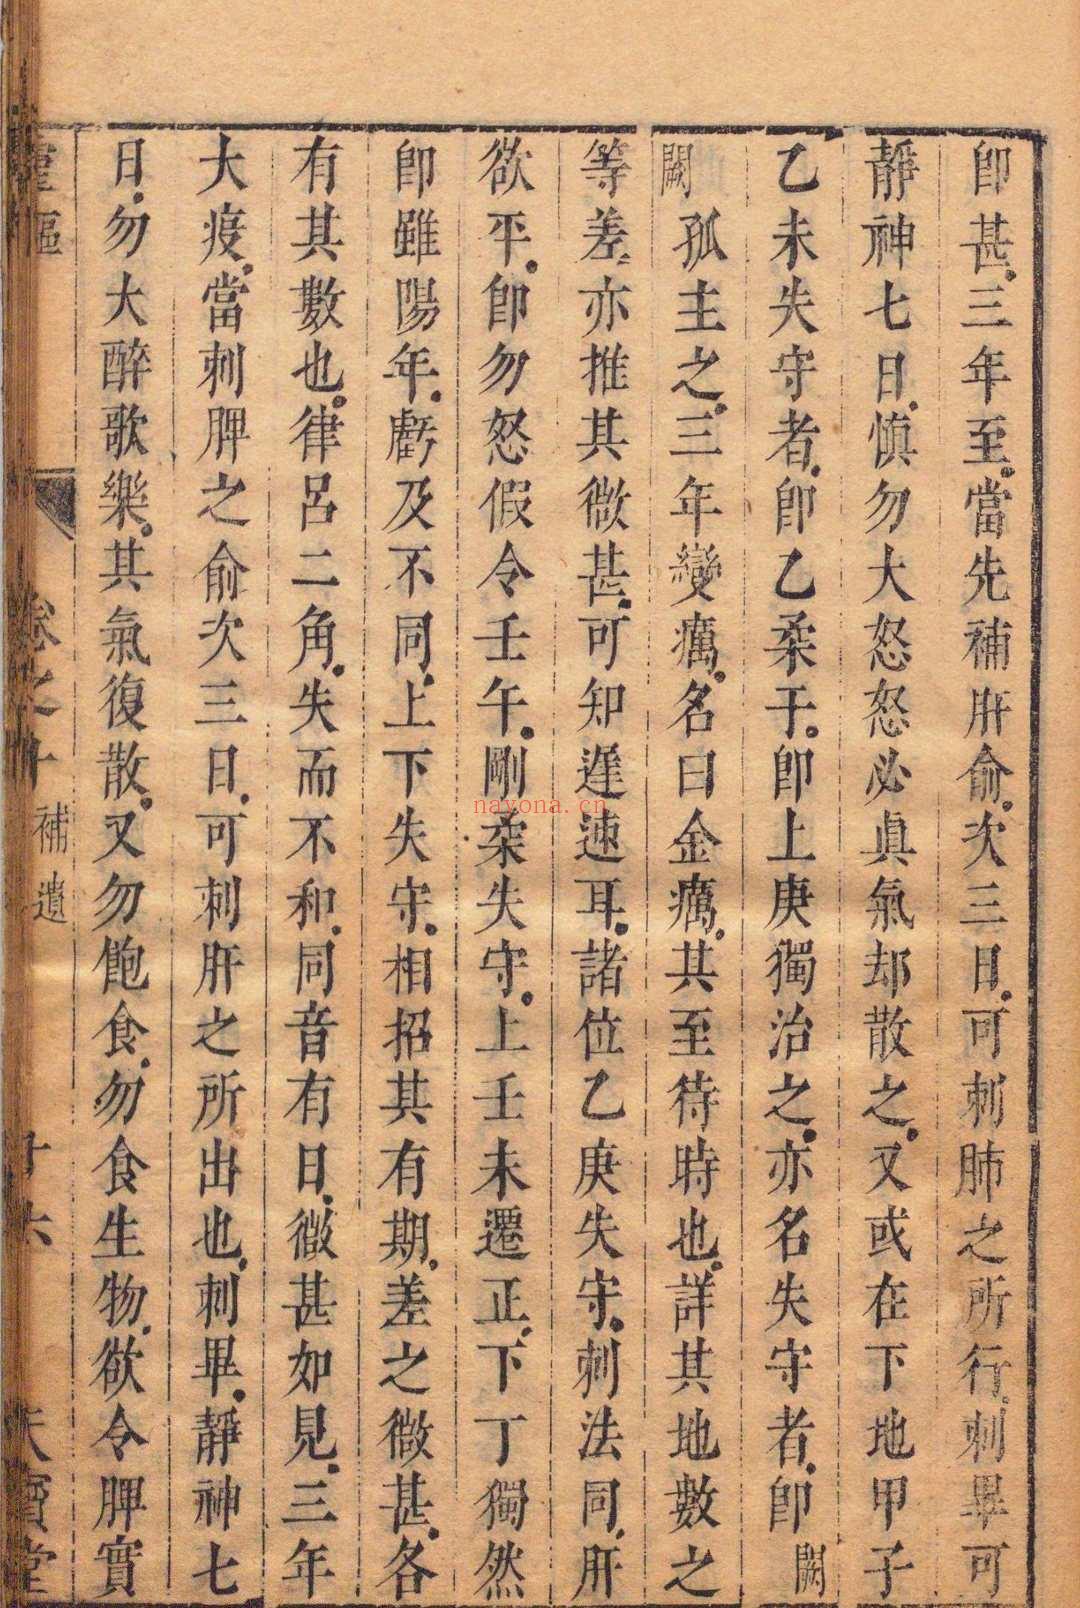 卽甚三年至當先補肝俞次三日可刺肺之所行刺畢可
靜神七日愼勿大怒怒必眞氣却散之又或在下地甲子
乙未失守者卽乙柔干卽上庚獨治之亦名失守者卽闕
闕孤主之三年變癘名曰金癘其至待時也詳其地數之
等差亦推其微甚可知遲速耳諸位乙庚失守刺法同肝
欲平卽勿怒假令壬午剛柔失守上壬未遷正下丁獨然
卽雖陽年虧及不同上下失守相招其有期差之微甚各
有其數也律呂二角失而不和同音有日微甚如見三年
大疫當刺脾之俞次三日可刺肝之所出也刺畢靜神七
日勿大醉歌樂其氣復散又勿飽食勿食生物欲令脾實
靈樞 卷之十 補遺 十六 天寶堂
nayona.cn